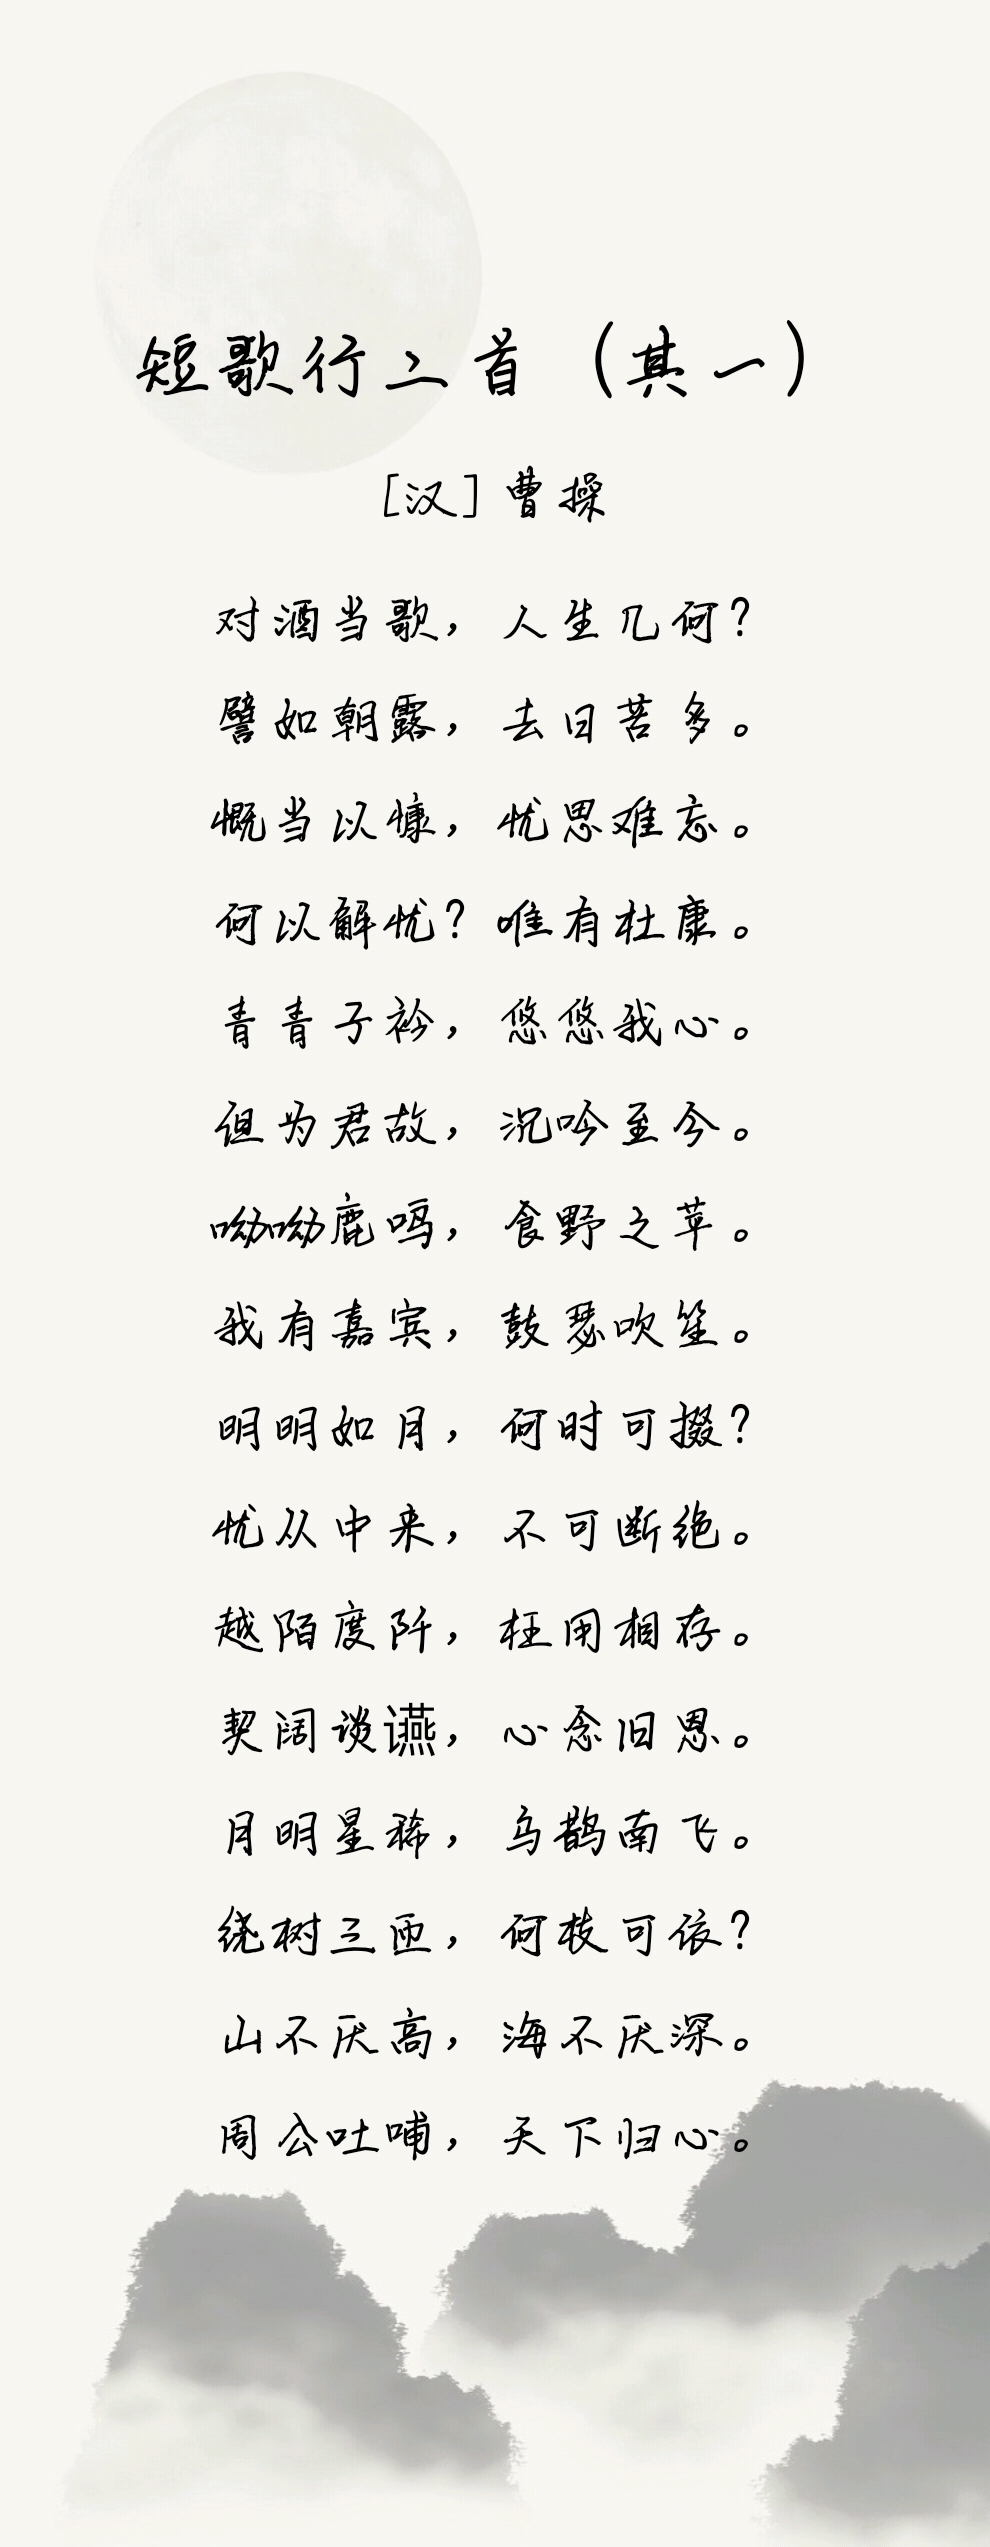 短歌行二首（其一）
[汉]曹操
对酒当歌，人生几何？
譬如朝露，去日苦多。
慨当以慷，忧思难忘。
何以解忧？唯有杜康。
青青子衿，悠悠我心。
但为君故，沉吟至今。
呦呦鹿鸣，食野之苹。
我有嘉宾，鼓瑟吹笙。
明明如月，何时可掇？
忧从中来，不可断绝。
越陌度阡，枉用相存。
契阔谈讌，心念旧恩。
月明星稀，乌鹊南飞。
绕树三匝，何枝可依？
山不厌高，海不厌深。
周公吐哺，天下归心。